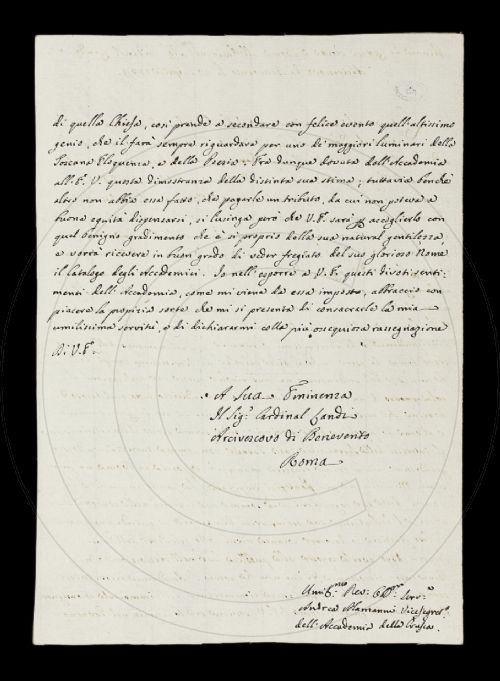 di quella Chiesa, così prende a secondare con felice evento quell'altissimo
genio, che il farà sempre riguardare per uno de' maggiori luminari della
Toscana Eloquenza, e della Poesia. Era dunque dovuta dall'Accademia
all'E. V. questa dimostranza della distinta sua stima; tuttavia benchè
altro non abbia essa fatto, che pagarle un tributo, da cui non poteva a
buona equità dispensarsi, si lusinga però che V. E. sarà p accoglierlo con
quel benigno gradimento che è sì proprio della sua natural gentilezza,
e vorrà ricevere in buon grado di veder fregiato del suo glorioso Nome
il Catalogo degli Accademici. Io nell'esporre a V. E. questi divoti senti-
menti dell'Accademia, come mi viene da essa imposto, abbraccio con
piacere la propizia sorte che mi si presenta di consacrarle la mia
umilissima servitù, e di dichiararmi colla più ossequiosa rassegnazione
Di V. E.
A Sua Eminenza
Il Sig. Cardinal Landi
Arcivescovo di Benevento
Roma
Andrea Alamanni Vicesegret.
dell'Accademia della Crusca